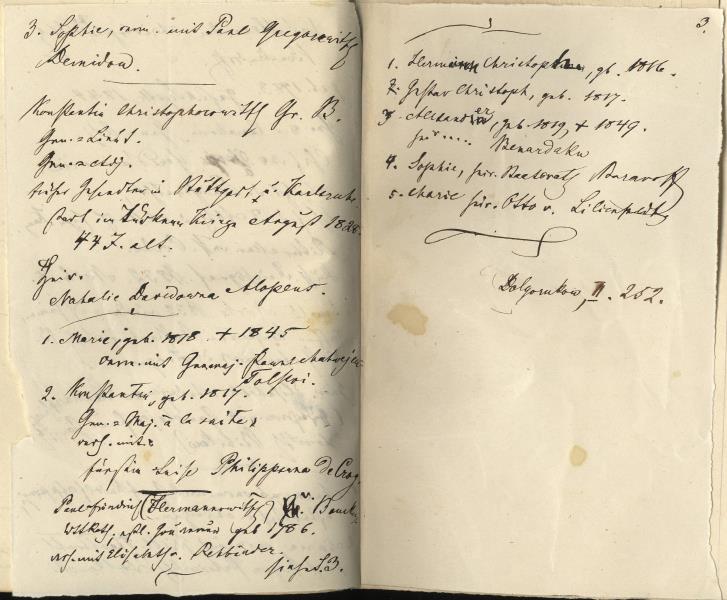 3. Sophie, verm. mit Paul Gregorewitsch
Demidow.
Konstantin Christophorowitsch Gr. B.
Gen.=Lieut.
Gen.=Adj.
früher Gesandter in Stuttgart u. Karlsruhe
starb im Türken Kriege August 1828.
44 J. alt.
Heir.
Natalie Davidowna Alopeus.
1. Marie, geb. 1818 + 1845
verm. mit General Tolstoi.
2. Konstantin, geb. 1817.
Gen.=Maj. à la suite,
verh. mit
Fürstin Luise Philippowna De Croy.
Paul Friedrich (Hermannowitsch) v.
geb 1786.
verh. mit Elisabeth v. Rehbinder.
siehe S. 3.
3.
1. Hermann Christoph, gb. 1816.
2. Gustav Christoph, geb. 1817.
3. Alexander, geb. 1819, + 1849.
heir. Benardaku
4. Sophie, heir. Staatsrath
5. Marie heir. Otto v. Lilienfeldt
Dolgorukow, II. 252.